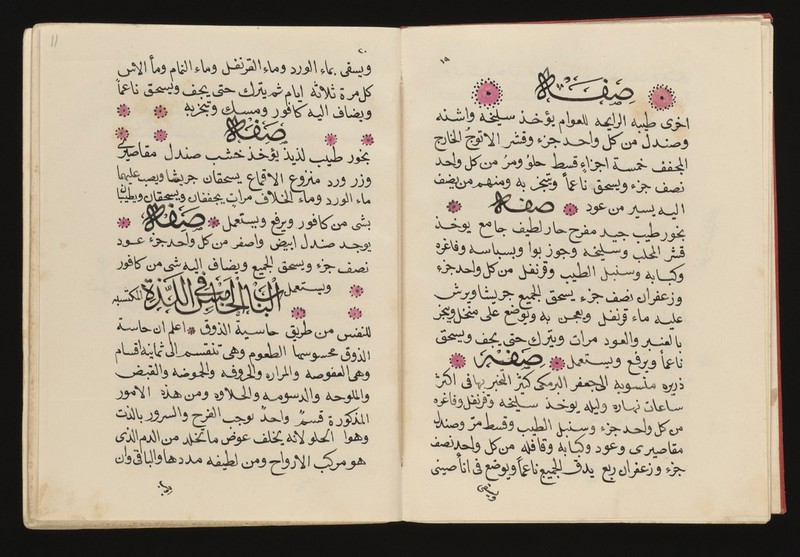 ١٩
صفة
اخرى طيبه الرايحه للعوام يؤخذ سليخه واشنه
وصندل من كل واحد جزء وقشر الاتوج الخارج
المجفف خمسة اجزاء قسط حلو ومر من كل واحد
نصف جزء ويسحق ناعماً ويتبخر به ومنهم من يضف
اليه يسير من عود صفة
بخور طيب جيد مفرح حار لطيف جامع يوخذ
قشر المحلب وسليخه وجوز بوا وبسباسه وفاغره
وكبابه وسنبل الطيب وقرنفل من كل واحد جزء
وزعفران نصف جزء يسحق الجميع جريشا ويرش
عليه ماء قرنفل ويعجن به ويوضع على منخل ويبخر
بالعنبر والعود مرات ويترك حتى يجف ويسحق
ناعماً ويرفع ويستعمل صفة
ذريره منسوبه الى جعفر البرمكي كثير التبخر بها في اكثر
ساعات نهاره وليله يوخذ سليخه وقرنفل وفاغره
من كل واحد جزء وسنبل الطيب وقسط مر وصندل
مقاصيرى وعود وكبابه وقاقله من كل واحد نصف
جزء وزعفران ربع يدق الجميع ناعماً ويوضع فى انا صينى
11
٢٠
ويسقى بماء الورد وماء القرنفل وماء النمام وماء الاس
كل مرة ثلاثه ايام ثم يترك حتى يجف ويسحق ناعماً
ويضاف اليه كافور ومسك ويتبخر به
صفة
بخور طيب لذيذ يؤخذ خشب صندل مقاصيرى
وزر ورد منزوع الاقماع يسحقان جريشا ويصب عليهما
ماء الورد وماء الخلاف مرات يجففان ويسحقان ويطيبان
بشى من كافور ويرفع ويستعمل صفة
يوجد صندل ابيض واصفر من كل واحد جزء عود
نصف جزء ويسحق الجميع ويضاف اليه شى من كافور
ويستعمل الباب الخامس في اللذة المكتسبه
للنفس من طريق حاسية الذوق اعلم ان حاسة
الذوق محسوسها الطعوم وهى تنقسم الى ثمانية اقسام
وهى العفوصه والمراره والحروفه والحموضه والقبض
والملوحه والدسومه والحلاوه ومن هذه الامور
المذكورة قسم واحد يوجب الفرح والسرور بالذت
وهوا الحلو لانه يخلف عوض ما تخلد من الدم الذى
هو مركب الارواح ومن لطيفه مددها والباقى وان